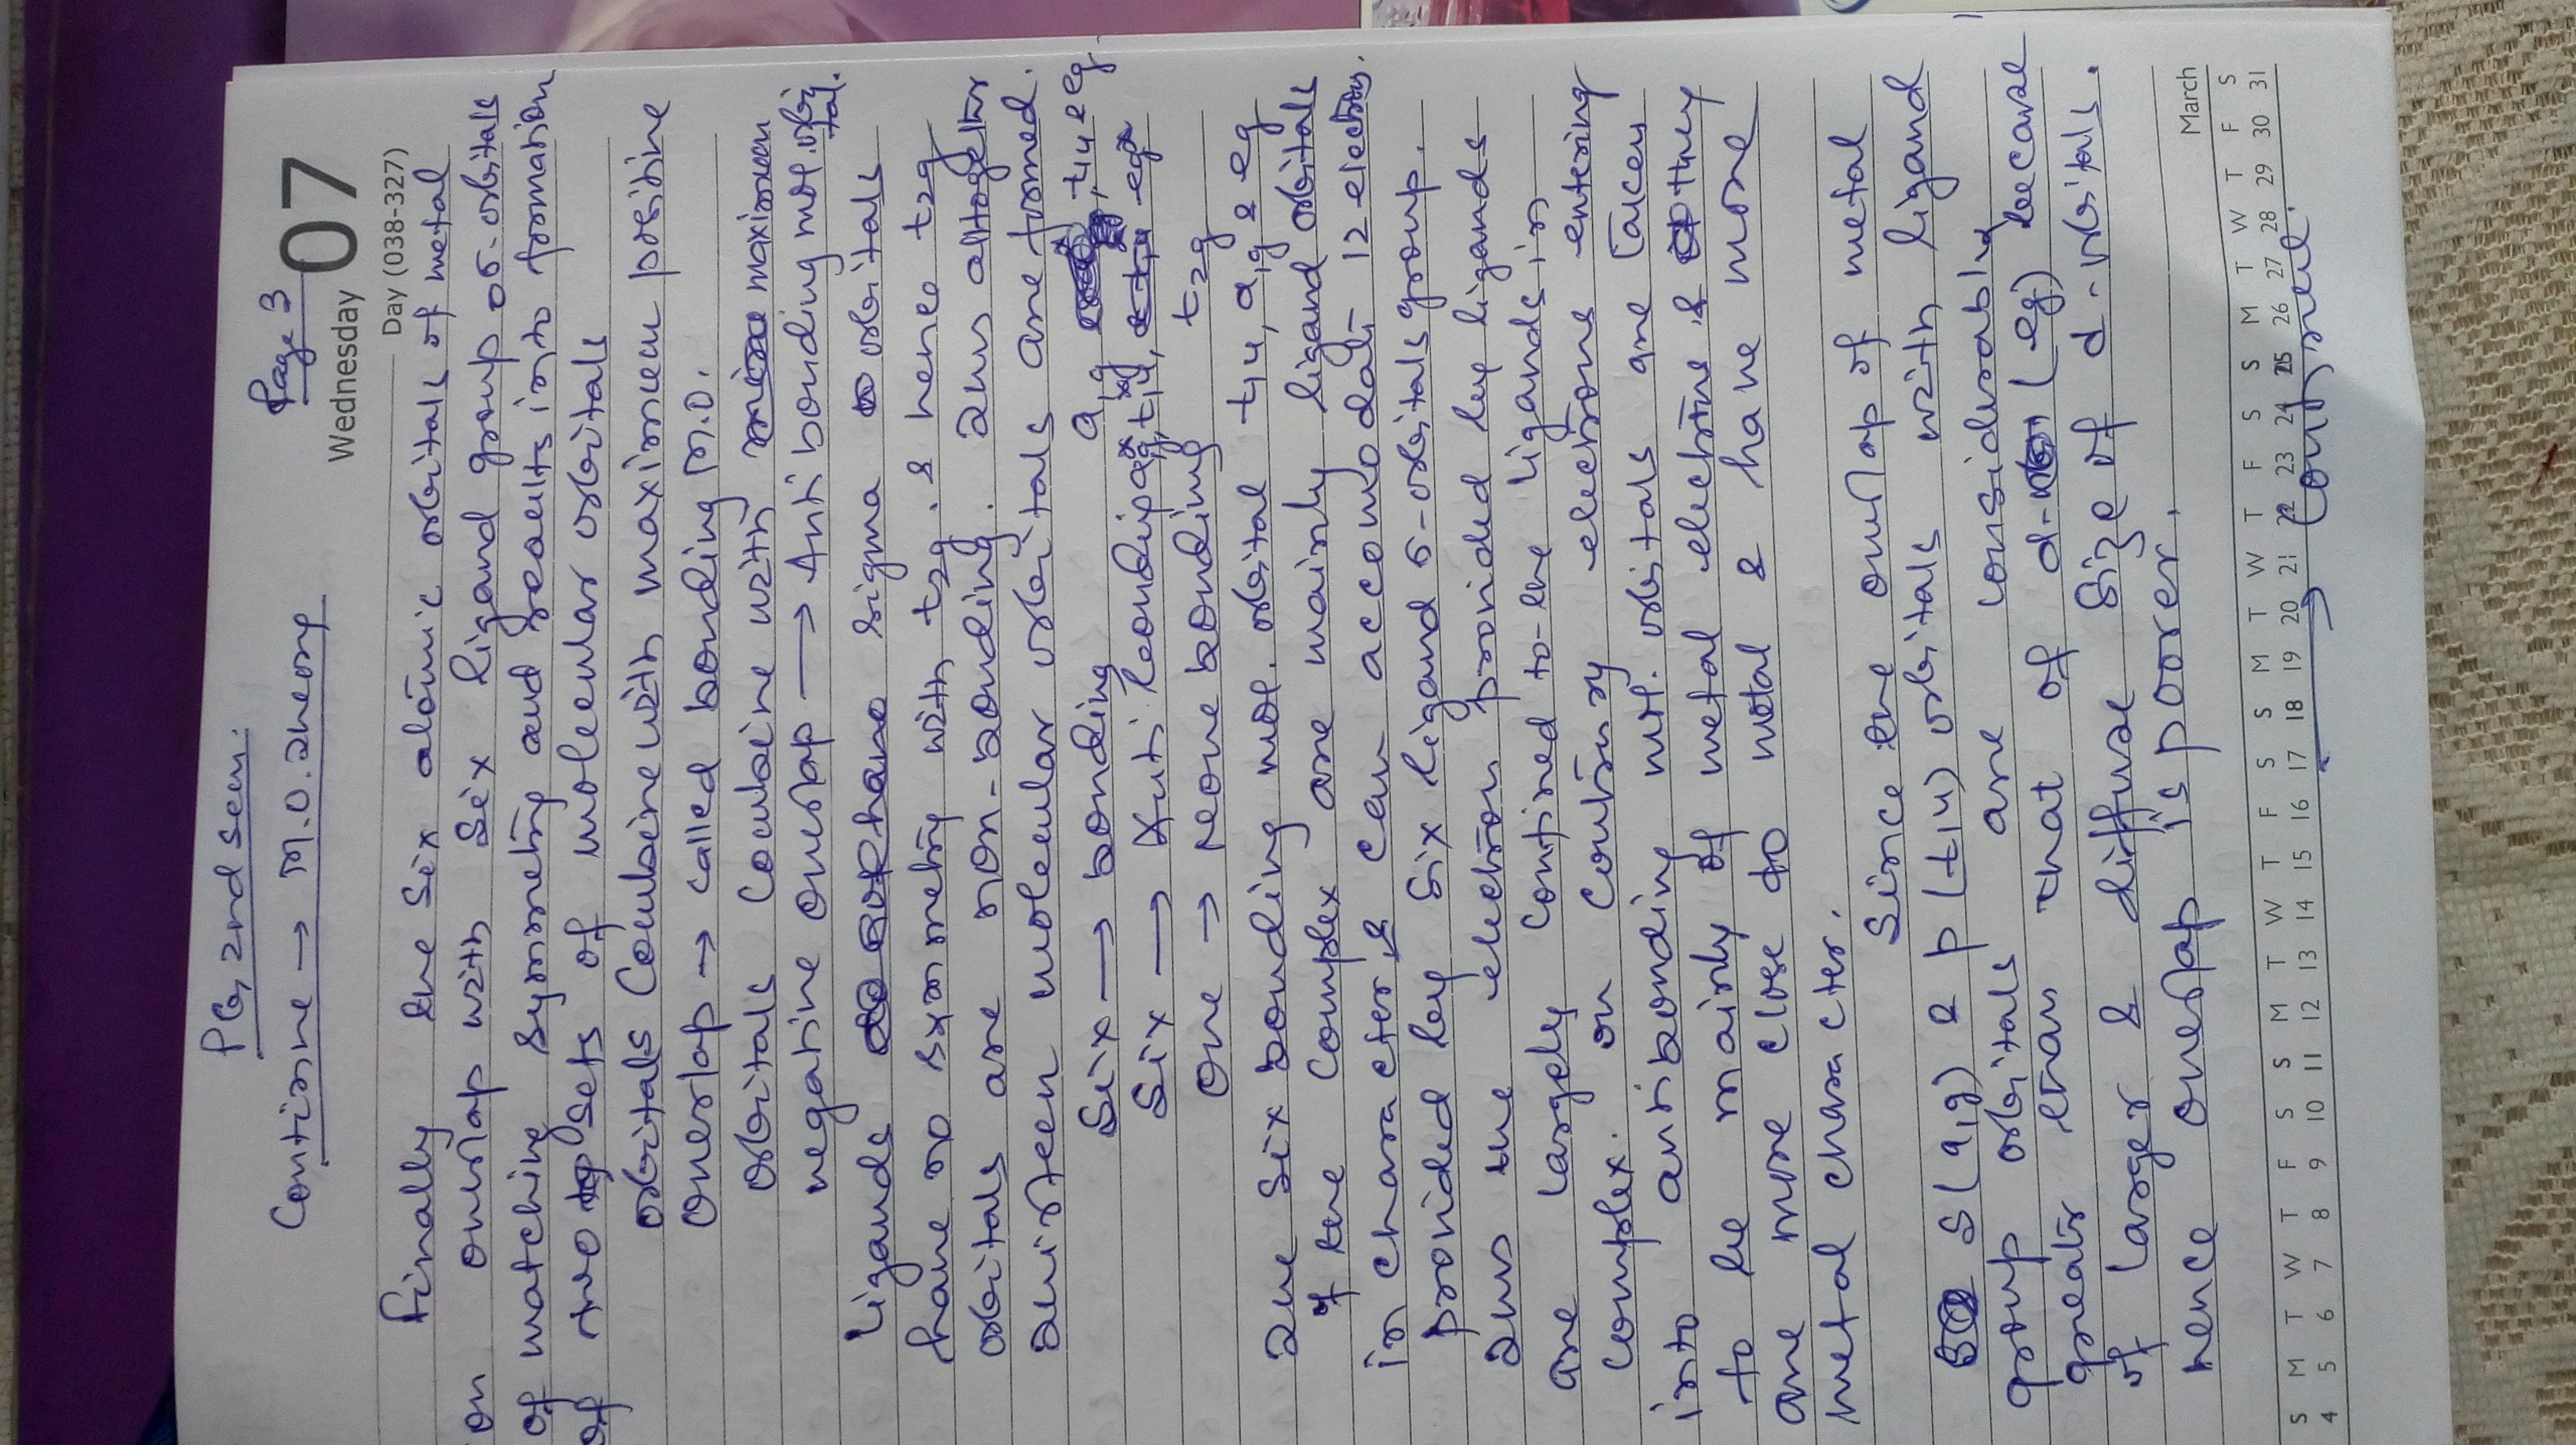 Page 3
PG, 2nd sem.
Wednesday 07
Continue → M.O. theory
Day (038-327)
Finally the six atomic orbitals of metal
ion overlap with six ligand group of σ-orbitals
of matching symmetry and results into formation
of two sets of molecular orbitals
orbitals combine with maximum positive
overlap → called bonding M.O.
orbitals combine with maximum
negative overlap → Anti bonding mol. orbital.
Ligands have sigma orbitals
have no symmetry with t2g. & hence t2g
orbitals are non-bonding. Thus altogether
thirteen molecular orbitals are formed.
Six → bonding a1g, t1u eg
Six → Anti bonding a*1g, t*1u, eg*
One → none bonding t2g
The six bonding mol. orbital t1u, a1g & eg
of the complex are mainly ligand orbitals
in character & can accomodate 12 electrons.
provided by six ligand σ-orbitals group.
Thus the electron provided by ligands
are largely confined to the ligands in
complex. on contrary electrons entering
into antibonding mol. orbitals are taken
to be mainly of metal electrons & they
are more close to metal & have more
metal character.
Since the overlap of metal
s(a1g) & p(t1u) orbitals with ligand
group orbitals are considerably
greater than that of d- (eg) because
of larger & diffuse size of d-orbitals.
hence overlap is poorer.
March
S M T W T F S S M T W T F S S M T W T F S S M T W T F S
4 5 6 7 8 9 10 11 12 13 14 15 16 17 18 19 20 21 22 23 24 25 26 27 28 29 30 31